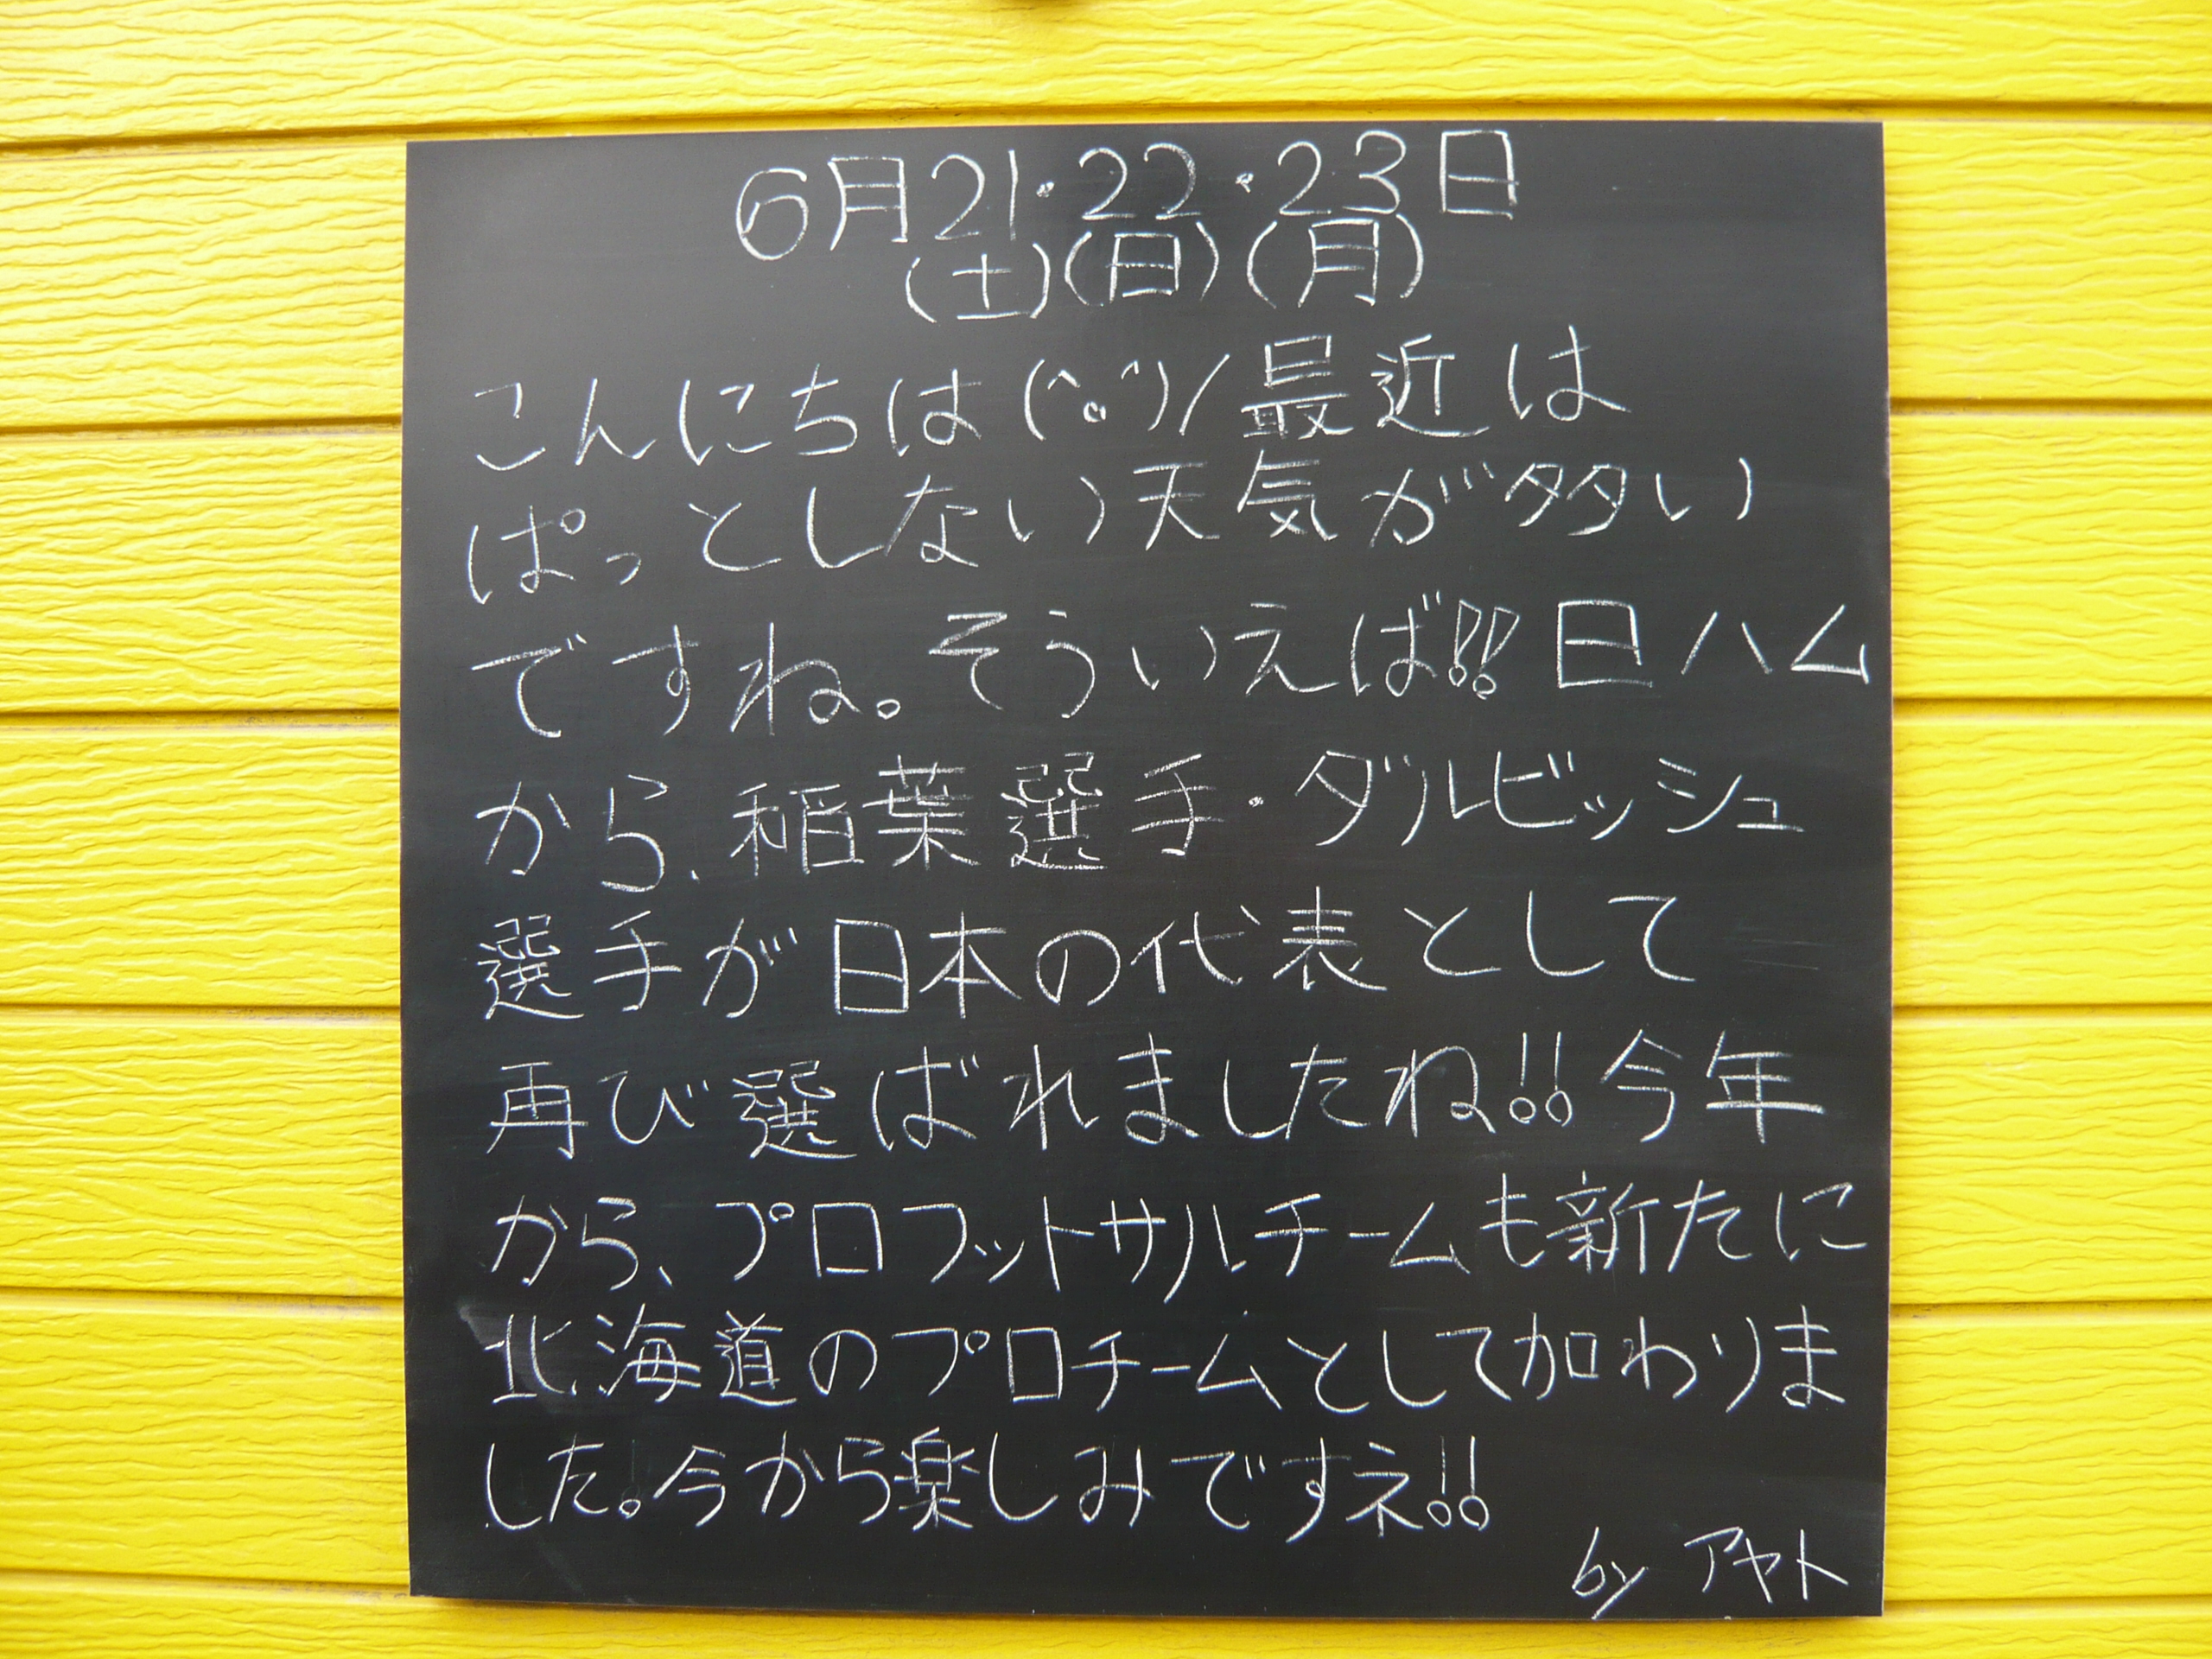 6月21・22・23日
(土)(日)(月)
こんにちは(^o^)/最近は
ぱっとしない天気が多い
ですね。そういえば!!日ハム
から、稲葉選手・ダルビッシュ
選手が日本の代表として
再び選ばれましたね!!今年
から、プロフットサルチームも新たに
北海道のプロチームとして加わりま
した。今から楽しみですネ!!
by アヤト